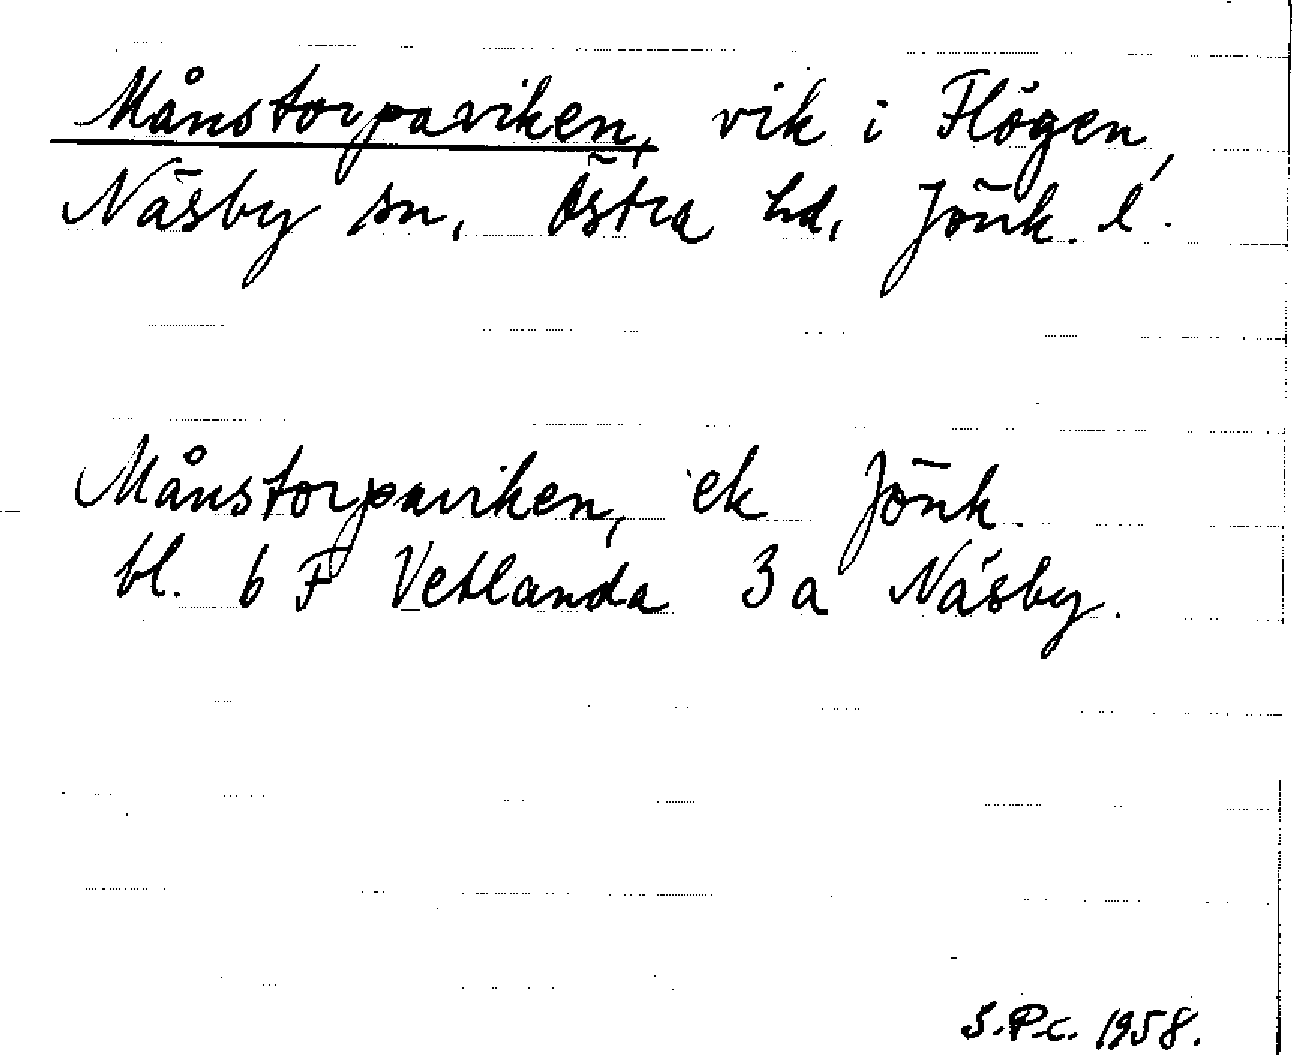 Månstorpaviken, vik i Flögen,
Näsby sn, Östra hd, Jönk. l.
Månstorpaviken, ek Jönk.
bl. 6 F Vetlanda 3 a Näsby.
S.Pc. 1958.